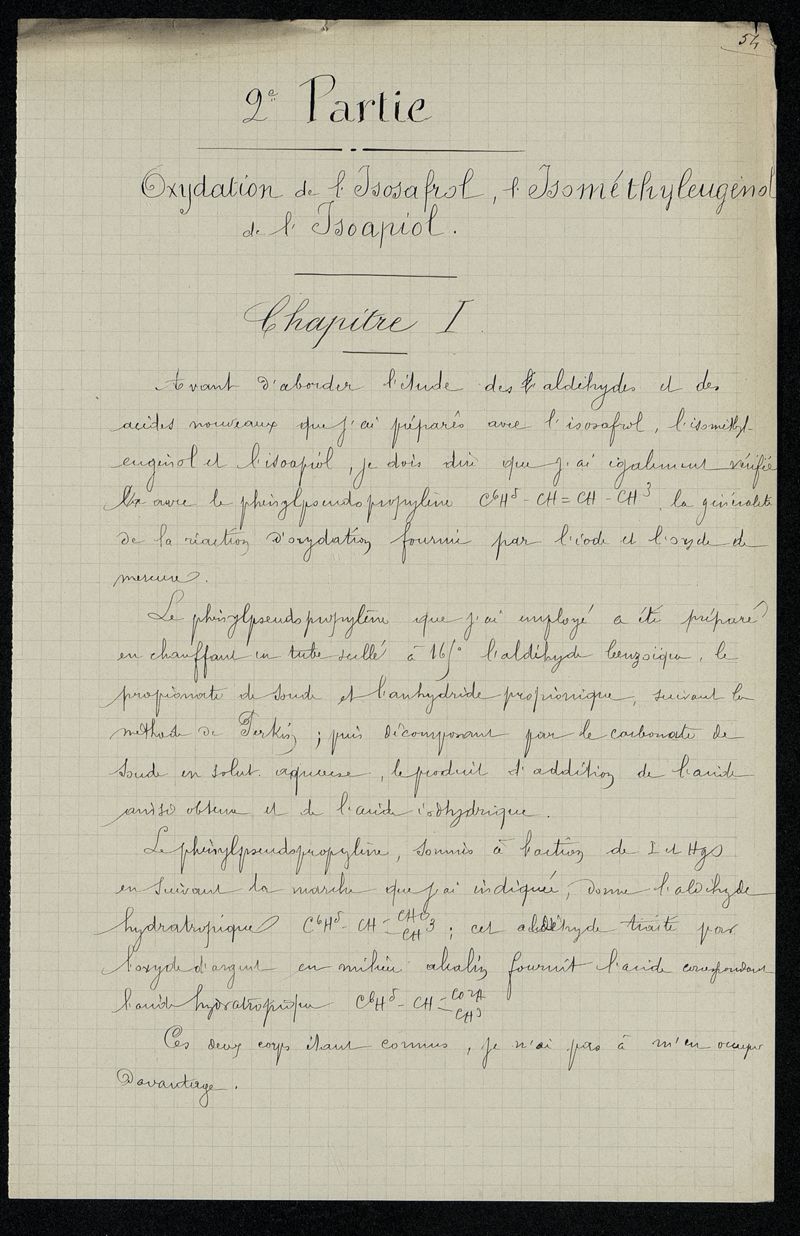 54
2e Partie
Oxydation de l'Isosafrol, l'Isométhyleugénol
de l'Isoapiol.
Chapitre I
Avant d'aborder l'étude des aldéhydes et des
acides nouveaux que j'ai préparés avec l'isosafrol, l'isométhyl-
eugénol et l'isoapiol, je dois dire que j'ai également vérifié
avec le phénylpseudopropylène C6H5 - CH = CH - CH3, la généralité
de la réaction d'oxydation fournie par l'iode et l'oxyde de
mercure.
Le phénylpseudopropylène que j'ai employé a été préparé
en chauffant en tube scellé à 165° l'aldéhyde benzoïque, le
propionate de soude et l'anhydride propionique, suivant la
méthode de Perkin ; puis décomposant par le carbonate de
soude en solut. aqueuse, le produit d'addition de l'acide
ainsi obtenu et de l'acide iodhydrique.
Le phénylpseudopropylène, soumis à l'action de I et HgO
en suivant la marche que j'ai indiquée, donne l'aldéhyde
hydratropique C6H5 - CH - CHO CH3 ; cet aldéhyde traité par
l'oxyde d'argent en milieu alcalin fournit l'acide correspondant
l'acide hydratropique C6H5 - CH - CO2H CH3
Ces deux corps étant connus, je n'ai pas à m'en occuper
davantage.